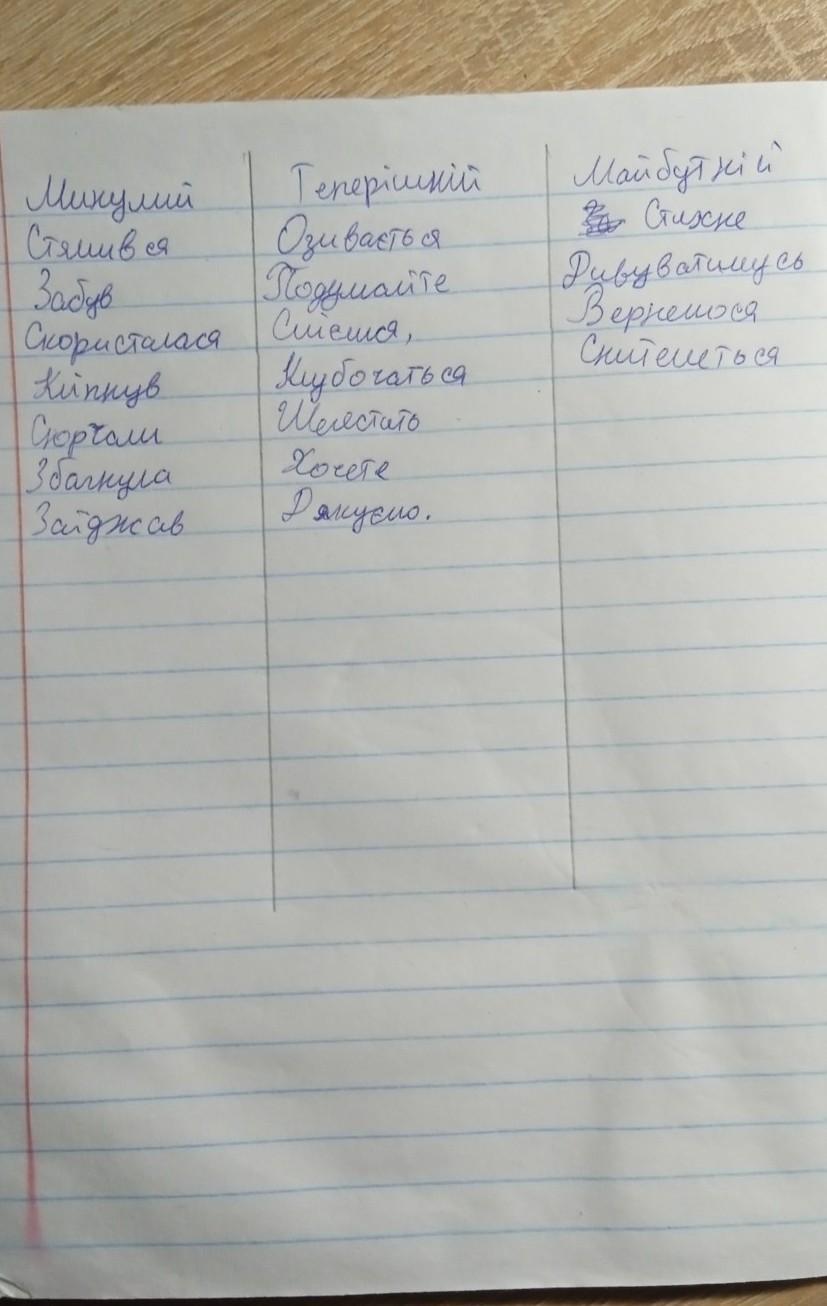 Минулий
Стямився
Забув
Скористалася
Кліпнув
Сюрчали
Збагнула
Заїджав
Теперішній
Озивається
Подумайте
Смієшся,
Клубочаться
Шелестять
Хочете
Дякуємо.
Майбутній
Стихне
Дивуватимусь
Вернемося